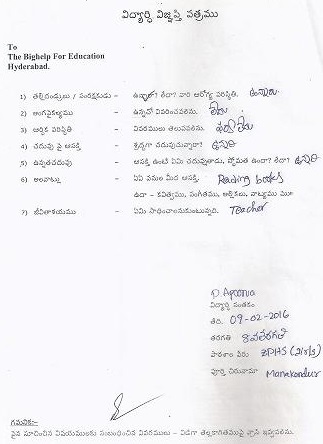 విద్యార్థి విజ్ఞప్తి పత్రము
To
The Bighelp For Education
Hyderabad.
1) తల్లిదండ్రులు / సంరక్షకుడు – ఉన్నారా? లేదా? వారి ఆరోగ్య పరిస్థితి. ఉన్నారు
2) అంగవైకల్యము – ఉన్నచో వివరించవలెను. లేదు
3) ఆర్థిక పరిస్థితి – వివరములు తెలుపవలెను.
4) చదువు పై ఆసక్తి – శ్రద్ధగా చదువుచున్నారా?
5) ఉన్నతచదువు – ఆసక్తి ఉంటే ఏమి చదువుతారు, స్తోమత ఉందా? లేదా?
6) అలవాట్లు – ఏఏ పనుల మీద ఆసక్తి. Reading books
ఉదా – కవిత్వము, సంగీతము, అల్లికలు, నాట్యము మొ॥
7) జీవితాశయము – ఏమి సాధించాలనుకుంటున్నది. Teacher
P. Apoorva
విద్యార్థి సంతకం
తేది. 09-02-2016
తరగతి
పాఠశాల పేరు ZPHS
పూర్తి చిరునామా Manakondur
గమనిక:-
పైన సూచించిన విషయములకు సంబంధించిన వివరములు – విడిగా తెల్లకాగితముపై వ్రాసి ఇవ్వవలెను.